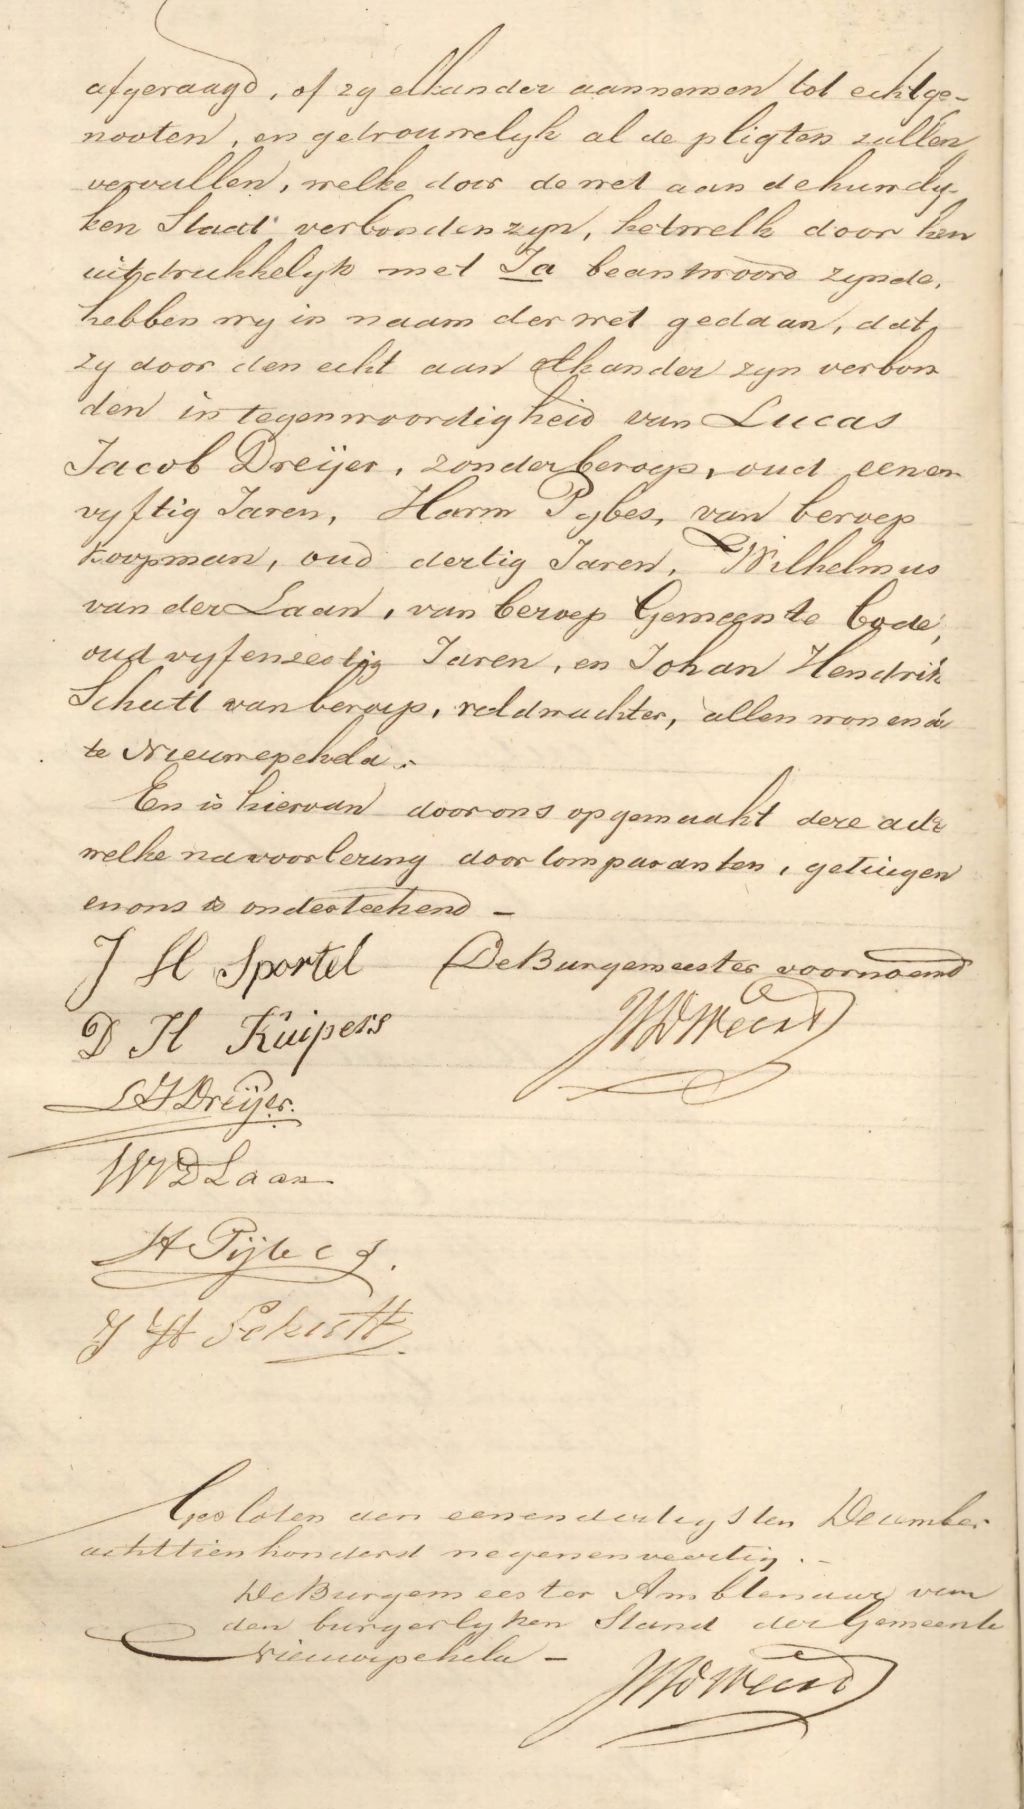 afgeraagd, of zy elkander aannemen tot echtge-
nooten, en getrouwelyk al de pligten zullen
vervullen, welke door de wet aan de huwely-
ken Staat verbonden zyn, hetwelk door hen
uitdrukkelyk met Ja beantwoord zynde,
hebben wy in naam der wet gedaan, dat
zy door den echt aan elkander zyn verbon
den in tegenwoordigheid van Lucas
Jacob Dreijer, zonder beroep, oud eenen
vyftig Jaren, Harm Pybes, van beroep
koopman, oud dertig Jaren, Wilhelmus
van der Laan, van beroep Gemeente bode,
oud vyfenzestig Jaren, en Johan Hendrik
Schutt van beroep, veldwachter, allen wonend
te Nieuwepekela.
En is hiervan door ons opgemaakt deze acte
welke na voorlezing door Comparanten, getuigen
en ons is onderteekend -
J H Sportel De Burgemeester voornoemd
D H Kuipers
L J Dreijer.
W V D Laan
H Pijbes.
J H Schutt
Gesloten den eenendertigsten December
achttienhonderd negenenveertig. -
De Burgemeester Ambtenaar van
den burgerlyken Stand der Gemeente
Nieuwepekela -